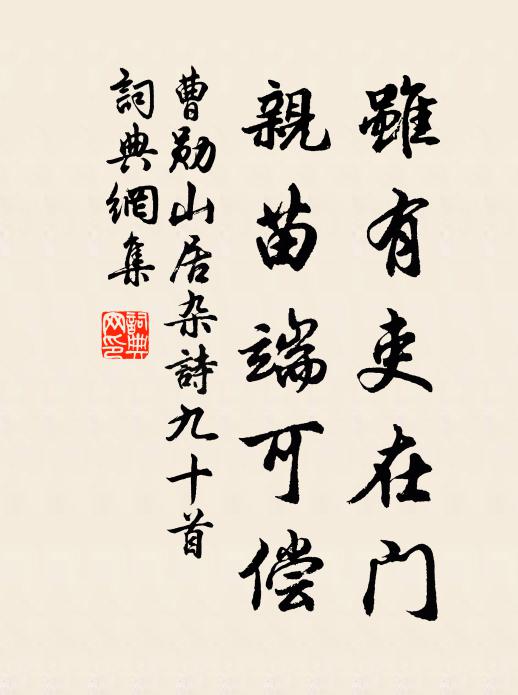 雖有吏在門
親苗端可偿
曹勛山居杂詩九十首
詞典網集
詞典網印